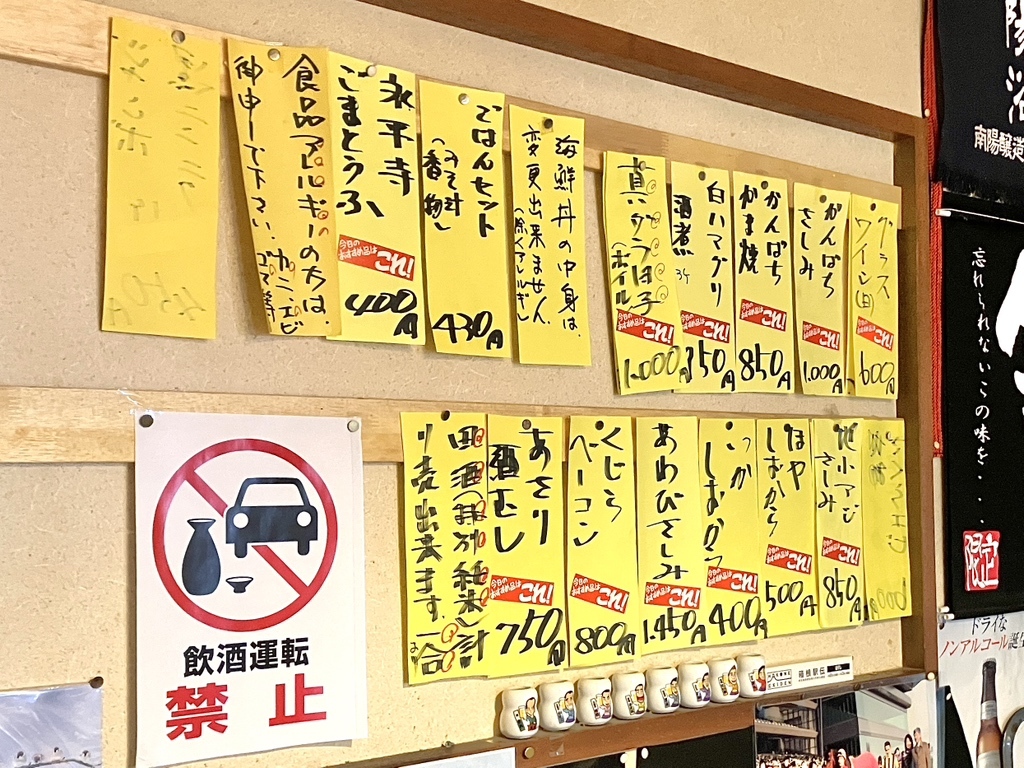 食品アレルギーの方は、
御申し下さい。カニ、エビ
永平寺
ごまとうふ
今日の
おすすめ品は
これ!
400円
ごはんセット
(みそ汁
香物)
430円
海鮮丼の中身は、
変更出来ません。
(除くアレルギー
(ボイル)
今日の
おすすめ品は
これ!
1.000円
白ハマグリ
酒煮
3ケ
今日の
おすすめ品は
これ!
かんぱち
かま焼
今日の
おすすめ品は
これ!
850円
かんぱち
さしみ
今日の
おすすめ品は
これ!
1.000円
グラス
ワイン(白)
今日の
おすすめ品は
これ!
600円
り売出来ます。一合
あさり
酒むし
今日の
おすすめ品は
これ!
750円
くじら
ベーコン
今日の
おすすめ品は
これ!
800円
あわびさしみ
今日の
おすすめ品は
これ!
1.450円
いか
しおから
今日の
おすすめ品は
これ!
400円
ほや
しおから
今日の
おすすめ品は
これ!
500円
地小アジ
さしみ
今日の
おすすめ品は
これ!
850円
飲酒運転
禁止
箱根駅伝
南陽醸造
忘れられないこの味を・・・
限定
ドライな
ノンアルコール誕